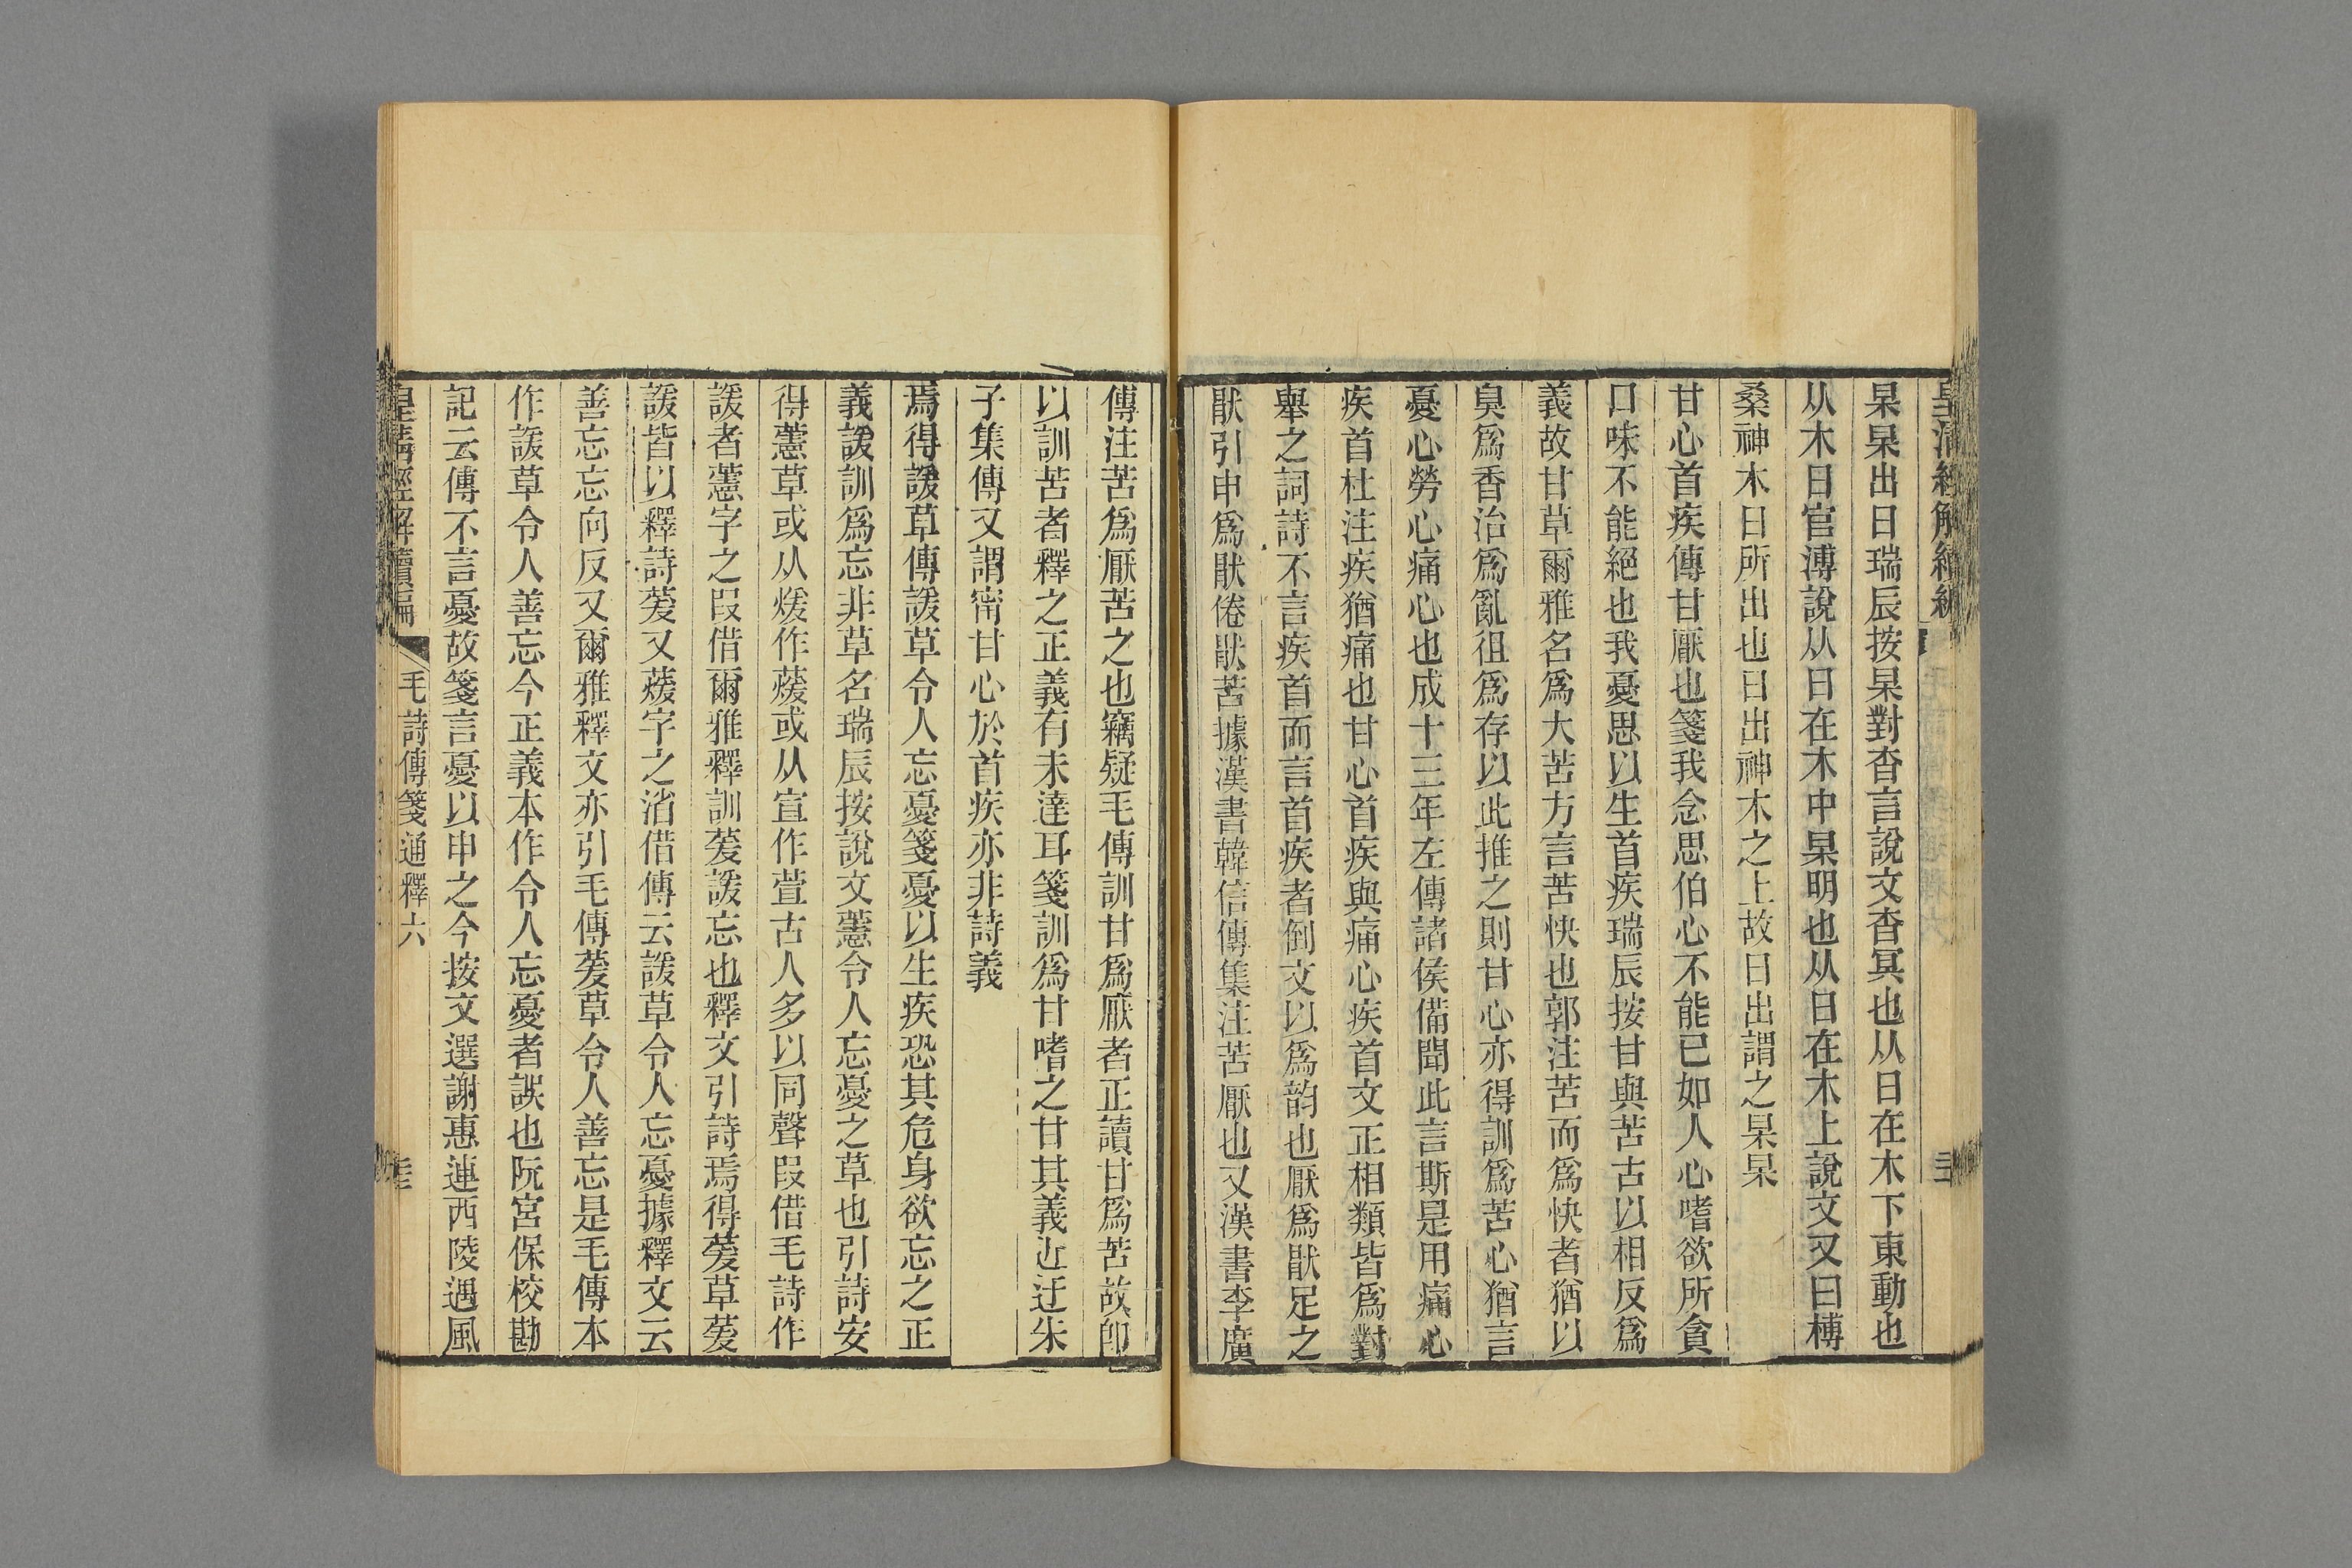 皇清經解續編
杲杲出日瑞辰按杲對杳言說文杳冥也从日在木下東動也
从木日官溥說从日在木中杲明也从日在木上說文又曰榑
桑神木日所出也日出神木之上故日出謂之杲杲
甘心首疾傳甘厭也箋我念思伯心不能已如人心嗜欲所貪
口味不能絕也我憂思以生首疾瑞辰按甘與苦古以相反爲
義故甘草爾雅名爲大苦方言苦快也郭注苦而爲快者猶以
臭爲香治爲亂徂爲存以此推之則甘心亦得訓爲苦心猶言
憂心勞心痛心也成十三年左傳諸侯備聞此言斯是用痛心
疾首杜注疾猶痛也甘心首疾與痛心疾首文正相類皆爲對
舉之詞詩不言疾首而言首疾者倒文以爲韵也厭爲猒足之
猒引申爲猒倦猒苦據漢書韓信傳集注苦厭也又漢書李廣
傳注苦爲厭苦之也竊疑毛傳訓甘爲厭者正讀甘爲苦故卽
以訓苦者釋之正義有未達耳箋訓爲甘嗜之甘其義近迂朱
子集傳又謂甯甘心於首疾亦非詩義
焉得諼草傳諼草令人忘憂箋憂以生疾恐其危身欲忘之正
義諼訓爲忘非草名瑞辰按說文藼令人忘憂之草也引詩安
得藼草或从煖作蕿或从宣作萱古人多以同聲叚借毛詩作
諼者藼字之叚借爾雅釋訓萲諼忘也釋文引詩焉得萲草萲
諼皆以釋詩萲又蕿字之渻借傳云諼草令人忘憂據釋文云
善忘忘向反又爾雅釋文亦引毛傳萲草令人善忘是毛傳本
作諼草令人善忘今正義本作令人忘憂者誤也阮宮保校勘
記云傳不言憂故箋言憂以申之今按文選謝惠連西陵遇風
皇清經解續編
毛詩傳箋通釋六